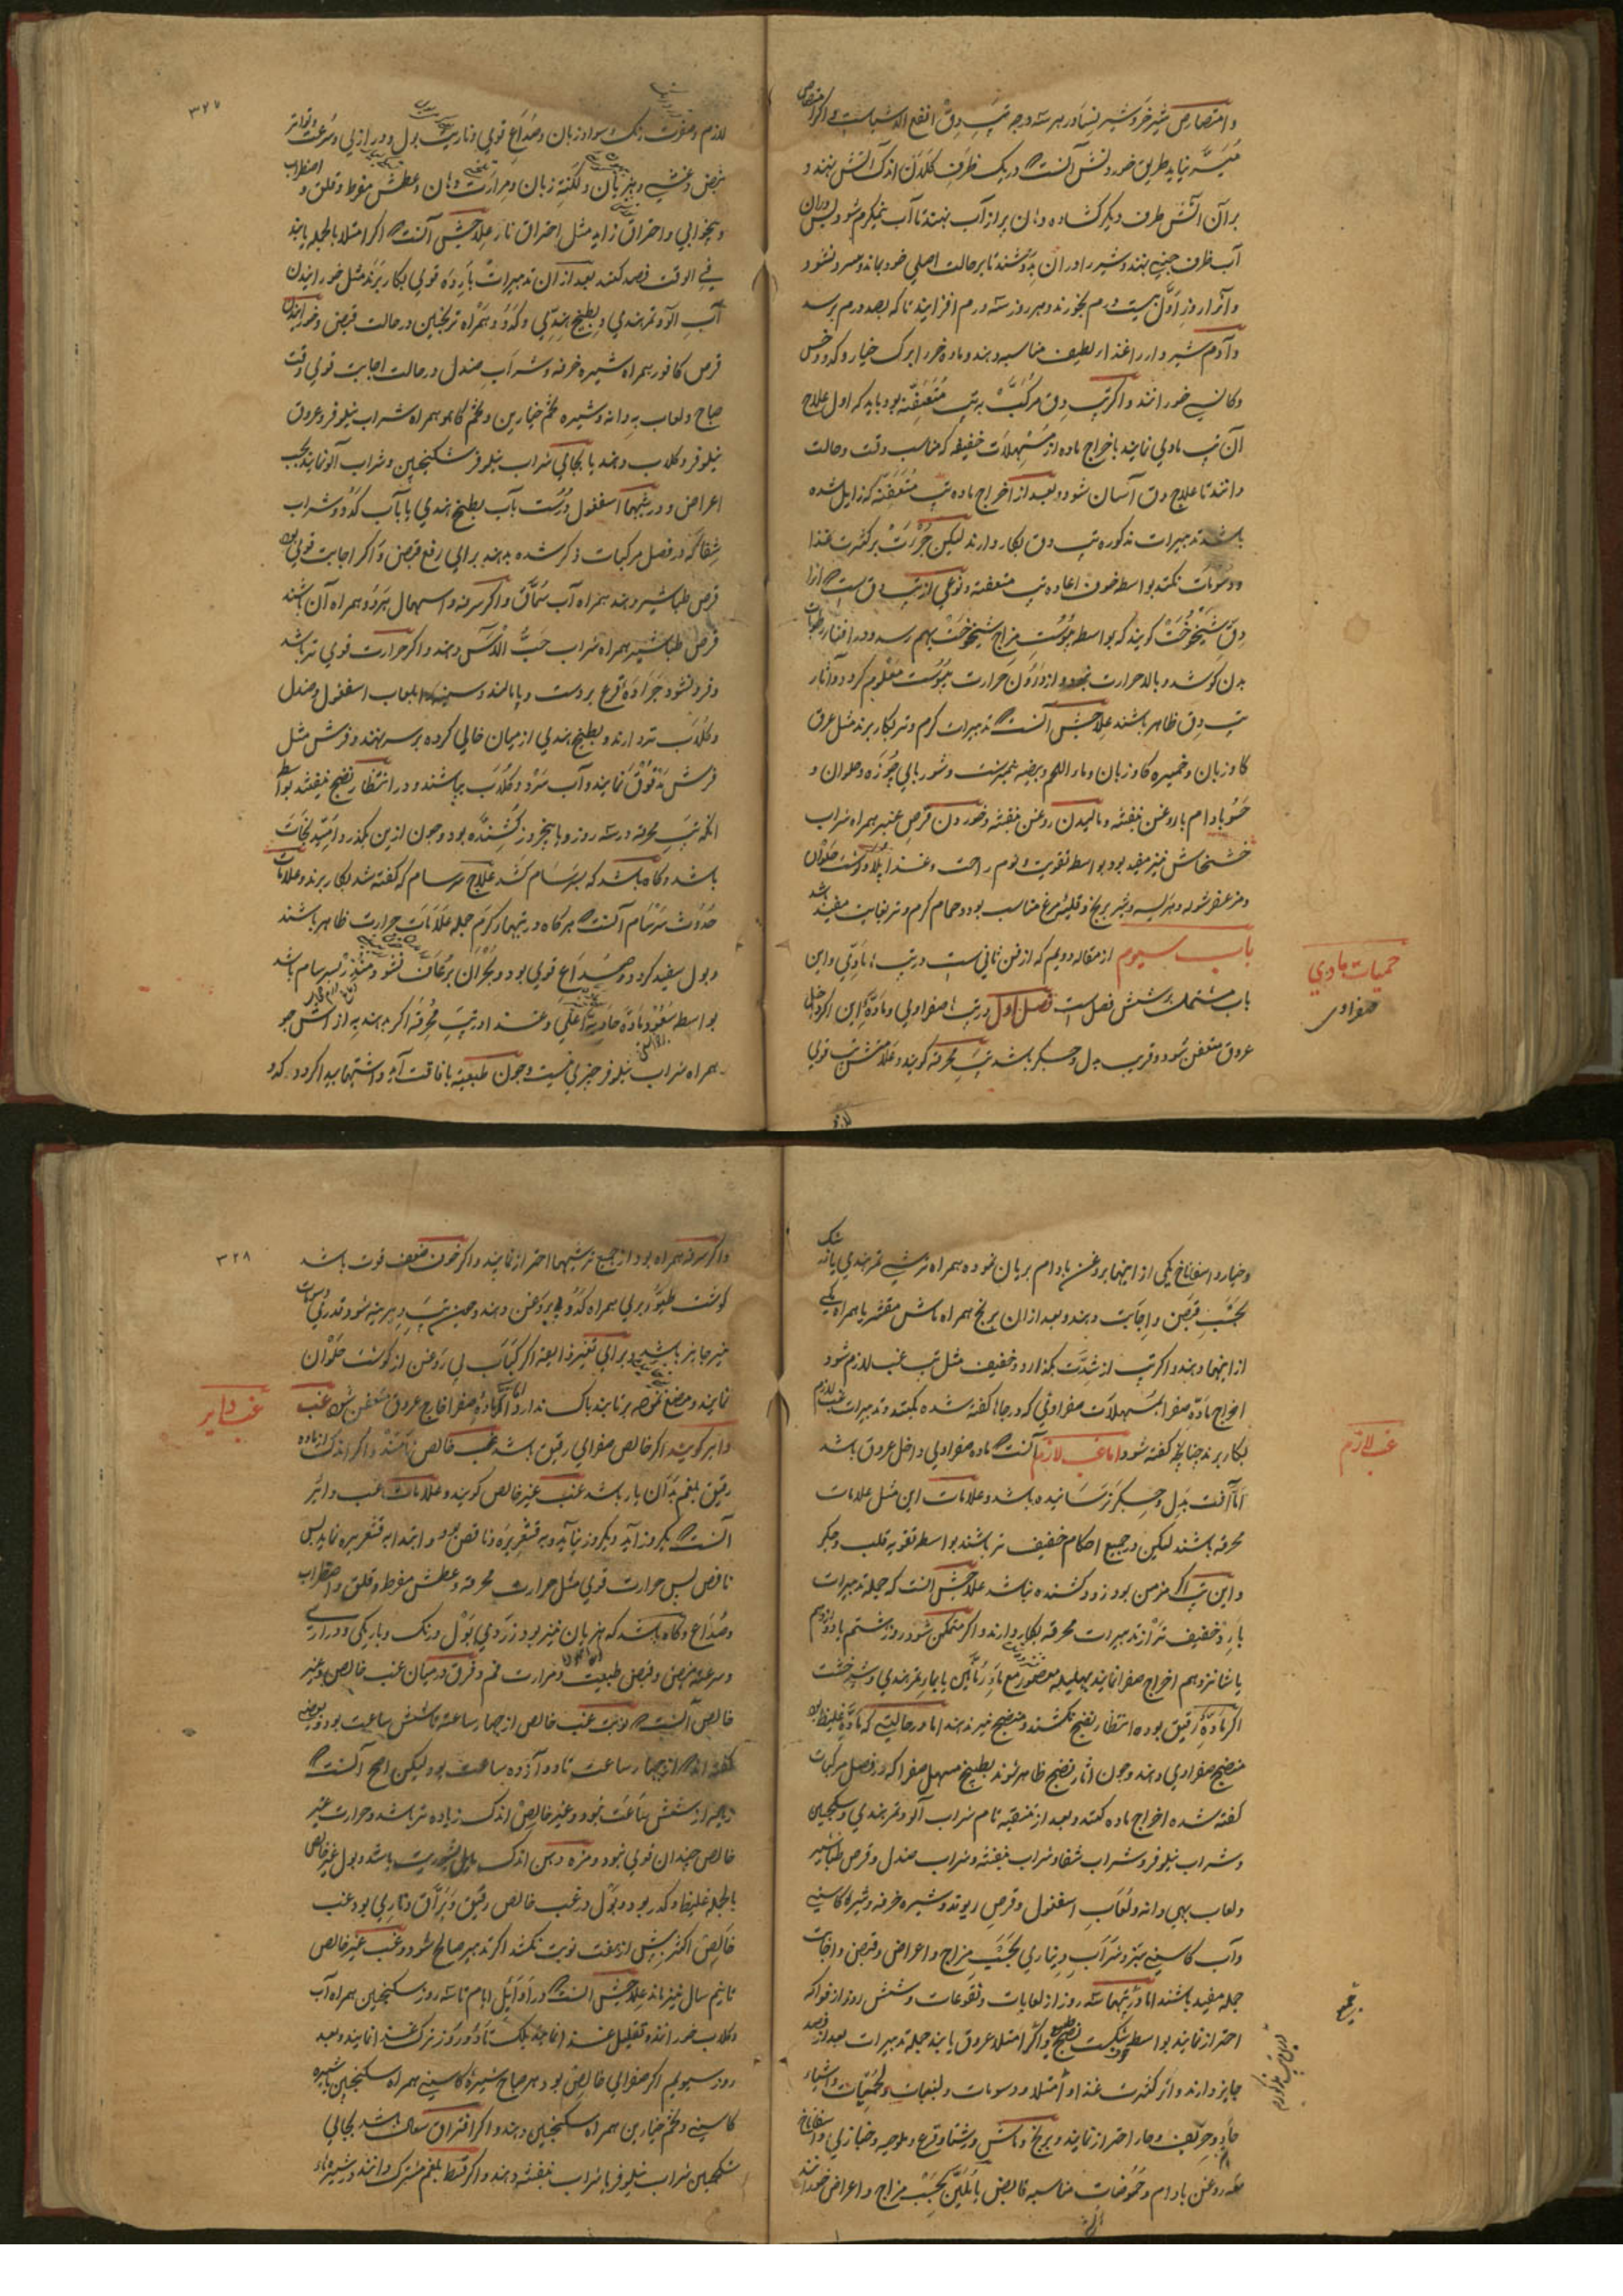 و امتصاص شیر خر و شیر نسا در هر سه درجه تپ دق انفع الاشیاست و اکر امتصاص
میسر نیاید طریق خوردنش آنست که در یک ظرف کلان اندک آتش نهند و
بر آن آتش ظرف دیکر کشاده دهان پر از آب نهند تا آب نیمکرم شود پس در آن
آب ظرف چینی نهند و شیر را در آن بدوشند تا بر حالت اصلی خود بماند و سرد نشود
و آنرا روز اول بیست درم بخورند و هر روز سه درم افزایند تا که بصد درم برسد
و آدم شیر دار را غذاء لطیف مناسبه دهند و ماده خر را برک خیار و کدو و خس
و کاسنی خورانند و اکر تپ دق مرکب به تپ متعفنه بود باید که اول علاج
آن تپ مادی نمایند باخراج ماده از مسهلات خفیفه که مناسب وقت و حالت
دانند تا علاج دق آسان شود و بعد از اخراج ماده تپ متعفنه که زایل شده
باشد تدبیرات مذکوره تپ دق بکار دارند لیکن جرءت بر کثرت غذا
و دسومات نکنند بواسطه خوف اعاده تپ متعفنه و نوعی از تپ دق ست که آنرا
دق شیخوخت کویند که بواسطه یبوست مزاج شیخوخت بهم رسد و در افناء رطوبات
بدن کوشد و بالا حرارت نبود و از درون حرارت یبوست معلوم کردد و آثار
تپ دق ظاهر باشند علاجش آنست که تدبیرات کرم و تر بکار برند مثل عرق
کاوزبان و خمیره کاوزبان و ماء اللحم و بیضه نیمبرشت و شوربای چوزه و حلوان و
حسو بادام با روغن بنفشه و مالیدن روغن بنفشه و خوردن قرص عنبر همراه شراب
خشخاش نیز مفید بود بواسطه تقویت و نوم راحت و غذا پلاو کوشت حلوان
و مزعفر شوله و هریسه و شیر برنج و قلیه مرغ مناسب بود و حمام کرم و تر بغایت مفید باشد
باب سیوم از مقاله دویم که از فن ثانی ست در تپهاء مادی و این
باب مشتملست بر شش فصل است فصل اول در تپهاء صفراوی و ماده این اکر داخل
عروق متعفن شود و قریب بدل و جکر باشد تپ محرقه کویند و علامتش تپ قوی
حمیات مادی
صفراوی
۳۲۷
لازم و صفرت رنک و سواد زبان و صداع قوی و ناریت بول و درازی و سرعت و تواتر
نبض و غشی و هذیان و لکنه زبان و مرارت دهان و عطش مفرط و قلق و اضطراب
و بیخوابی و احتراق زاید مثل احتراق نار علاجش آنست که اکر امتلا بالجمله یابند
فی الوقت فصد کنند بعد از آن تدبیرات بارده قوی بکار برند مثل خورانیدن
آب آلو و تمرهندی و بطیخ هندی و کدو و همراه ترنجبین در حالت قبض و خورانیدن
قرص کافور همراه شیره خرفه و شراب صندل در حالت اجابت قوی وقت
صباح و لعاب به دانه و شیره تخم خیارین و تخم کاهو همراه شراب نیلوفر و عروق
نیلوفر و کلاب دهند یا بجای شراب نیلوفر سکنجبین و شراب آلو نمایند بحسب
اعراض و در شبها اسفغول درست بآب بطیخ هندی یا بآب کدو و شراب
شفا که در فصل مرکبات ذکر شده بدهند برای رفع قبض و اکر اجابت قوی بود
قرص طباشیر دهند همراه آب سماق و اکر سرفه و اسهال هر دو همراه آن باشند
قرص طباشیر همراه شراب حب الآس دهند و اکر حرارت قوی تر باشد
و فرو نشود جراده قرع بر دست و پا مالند و سینه را بلعاب اسفغول و صندل
و کلاب تر دارند و بطیخ هندی از میان خالی کرده بر سر نهند و فرش مثل
فرش مدقوق نمایند و آب سرد و کلاب بپاشند و در انتظار نضج نیفتند بواسطه
آنکه تپ محرقه در سه روز و یا پنج روز کشنده بود و چون ازین بکذرد امید نجات
باشد و کاه باشد که بسرسام کشد علاج سرسام که کفته شد بکار برند و علامات
حدوث سرسام آنست که هرکاه در تپهاء کرم جمله علامات حرارت ظاهر باشند
و بول سفید کردد و صداع قوی بود و بحران برعاف نشود منذر بسرسام باشد
بواسطه صعود ماده حاده باعلی و غذا در تپ محرقه اکر بدهند به از آش جو
همراه شراب نیلوفر چیزی نیست و چون طبیعت بافاقت آید و اشتها پیدا کردد کدو
و خیار و اسفاناخ یکی از اینها بروغن بادام بریان نموده همراه ترشی تمرهندی یا نمک
بحسب قبض و اجابت دهند و بعد از آن برنج همراه ماش مقشر یا همراه یکی
ازینها دهند و اکر تپ از شدت بکذارد و خفیف مثل تپ غب لازم شود
اخراج ماده صفرا بمسهلات صفراوی که در جا کفته شده بکنند و تدبیرات غب لازم
بکار برند چنانچه کفته شود اما غب لازم آنست که ماده صفراوی داخل عروق باشد
اما آفت بدل و جکر نرسانیده باشد و علامات این مثل علامات
محرقه باشند لیکن در جمیع احکام خفیف تر باشند بواسطه تقویه قلب و جکر
و این تپ اکر مزمن بود زود کشنده نباشد علاجش آنست که جمله تدبیرات
بارد خفیف تر از تدبیرات محرقه بکار دارند و اکر متمکن شود روز هشتم یا دوازدهم
یا شانزدهم اخراج صفرا نمایند بهلیله معصور مع ماء رمانین یا بماء تمرهندی و شیرخشت
اکر ماده رقیق بود انتظار نضج نکشند و منضج نیز ندهند اما در حالتی که ماده غلیظ بود
منضج صفراوی دهند و چون آثار نضج ظاهر شوند بطبیخ مسهل صفرا که در فصل مرکبات
کفته شده اخراج ماده کنند و بعد از تنقیه تام شراب آلو و تمرهندی و سکنجبین
و شراب نیلوفر و شراب شفا و شراب بنفشه و شراب صندل و قرص طباشیر
و لعاب بهی دانه و لعاب اسفغول و قرص ریوند و شیره خرفه و شیره کاسنی
و آب کاسنی سبز و شراب دیناری بحسب مزاج و اعراض و قبض و اجابت
جمله مفید باشند اما در تپها سه روز از لعابات و نقوعات و شش روز از فواکه
احتراز نمایند بواسطه شکست نضج و اکر امتلاء عروق یابند جمله تدبیرات بعد از فصد
جایز دارند و از کثرت غذا و امتلا و دسومات و لبنیات و لحمیات و اشیاء
حاد و حریف و حار احتراز نمایند و برنج و ماش و رشتا و قرع و ملوخیه و خبازی و اسفاناخ
مع روغن بادام و حموضات مناسبه قابض یا ملین بحسب مزاج و اعراض خورانند
غب لازم
۳۲۸
و اکر سرفه همراه بود از جمیع ترشیها احتراز نمایند و اکر خوف ضعف قوت باشد
کوشت طیور بری همراه کدو بی روغن دهند و چون تپ دیرینه شود قدری دسومات
نیز جایز باشد و برای تغیر ذایقه اکر کباب بی روغن از کوشت حلوان
نمایند و مضغ نموده برتابند باک ندارد اما اکر ماده صفرا خارج عروق متعفن شود غب
دایر کویند اکر خالص صفرای رقیق باشد غب خالص نامند و اکر اندک از ماده
رقیق بلغم بدان یار باشد غب غیر خالص کویند و علامات غب دائر
آنست که یکروز آید و یکروز نیاید و به قشعریره و نافض بود و ابتدا به قشعریره نماید پس
نافض پس حرارت قوی مثل حرارت محرقه و عطش مفرط و قلق و اضطراب
و صداع و کاه باشد که هذیان نیز بود زردی بول و رنک و باریکی و درازی
و سرعت نبض و قبض طبیعت و مرارت فم و فرق درمیان غب خالص و غیر
خالص آنست که نوبت غب خالص از چهار ساعت تا شش ساعت بود و بعضی
کفته اند که از چهار ساعت تا دوازده ساعت بود لیکن اصح آنست که
زیاده از شش ساعت نبود و غیر خالص اندک زیاده تر باشد و حرارت غیر
خالص چندان قوی نبود و مزه دهن اندک مایل بشوریت باشد و بول غیر خالص
بالجمله غلیظ و کدر بود و بول در غب خالص رقیق و براق و ناری بود و غب
خالص اکثر بیش از هفت نوبت نکند اکر تدبیر صالح شود و غب غیر خالص
تا نیم سال نیز ماند علاجش آنست که در اوایل ایام تا سه روز سکنجبین همراه آب
و کلاب خورانند و تقلیل غذا نمایند بلکه تا دو روز ترک غذا نمایند و بعد
روز سیوم اکر صفرای خالص بود هر صباح شیره کاسنی همراه سکنجبین یا شیره
کاسنی و تخم خیارین همراه سکنجبین دهند و اکر احتراق سعال باشد بجای
سکنجبین شراب نیلوفر یا شراب بنفشه دهند و اکر قسط بلغم مشترک دانند و شیره ها
غب دایر